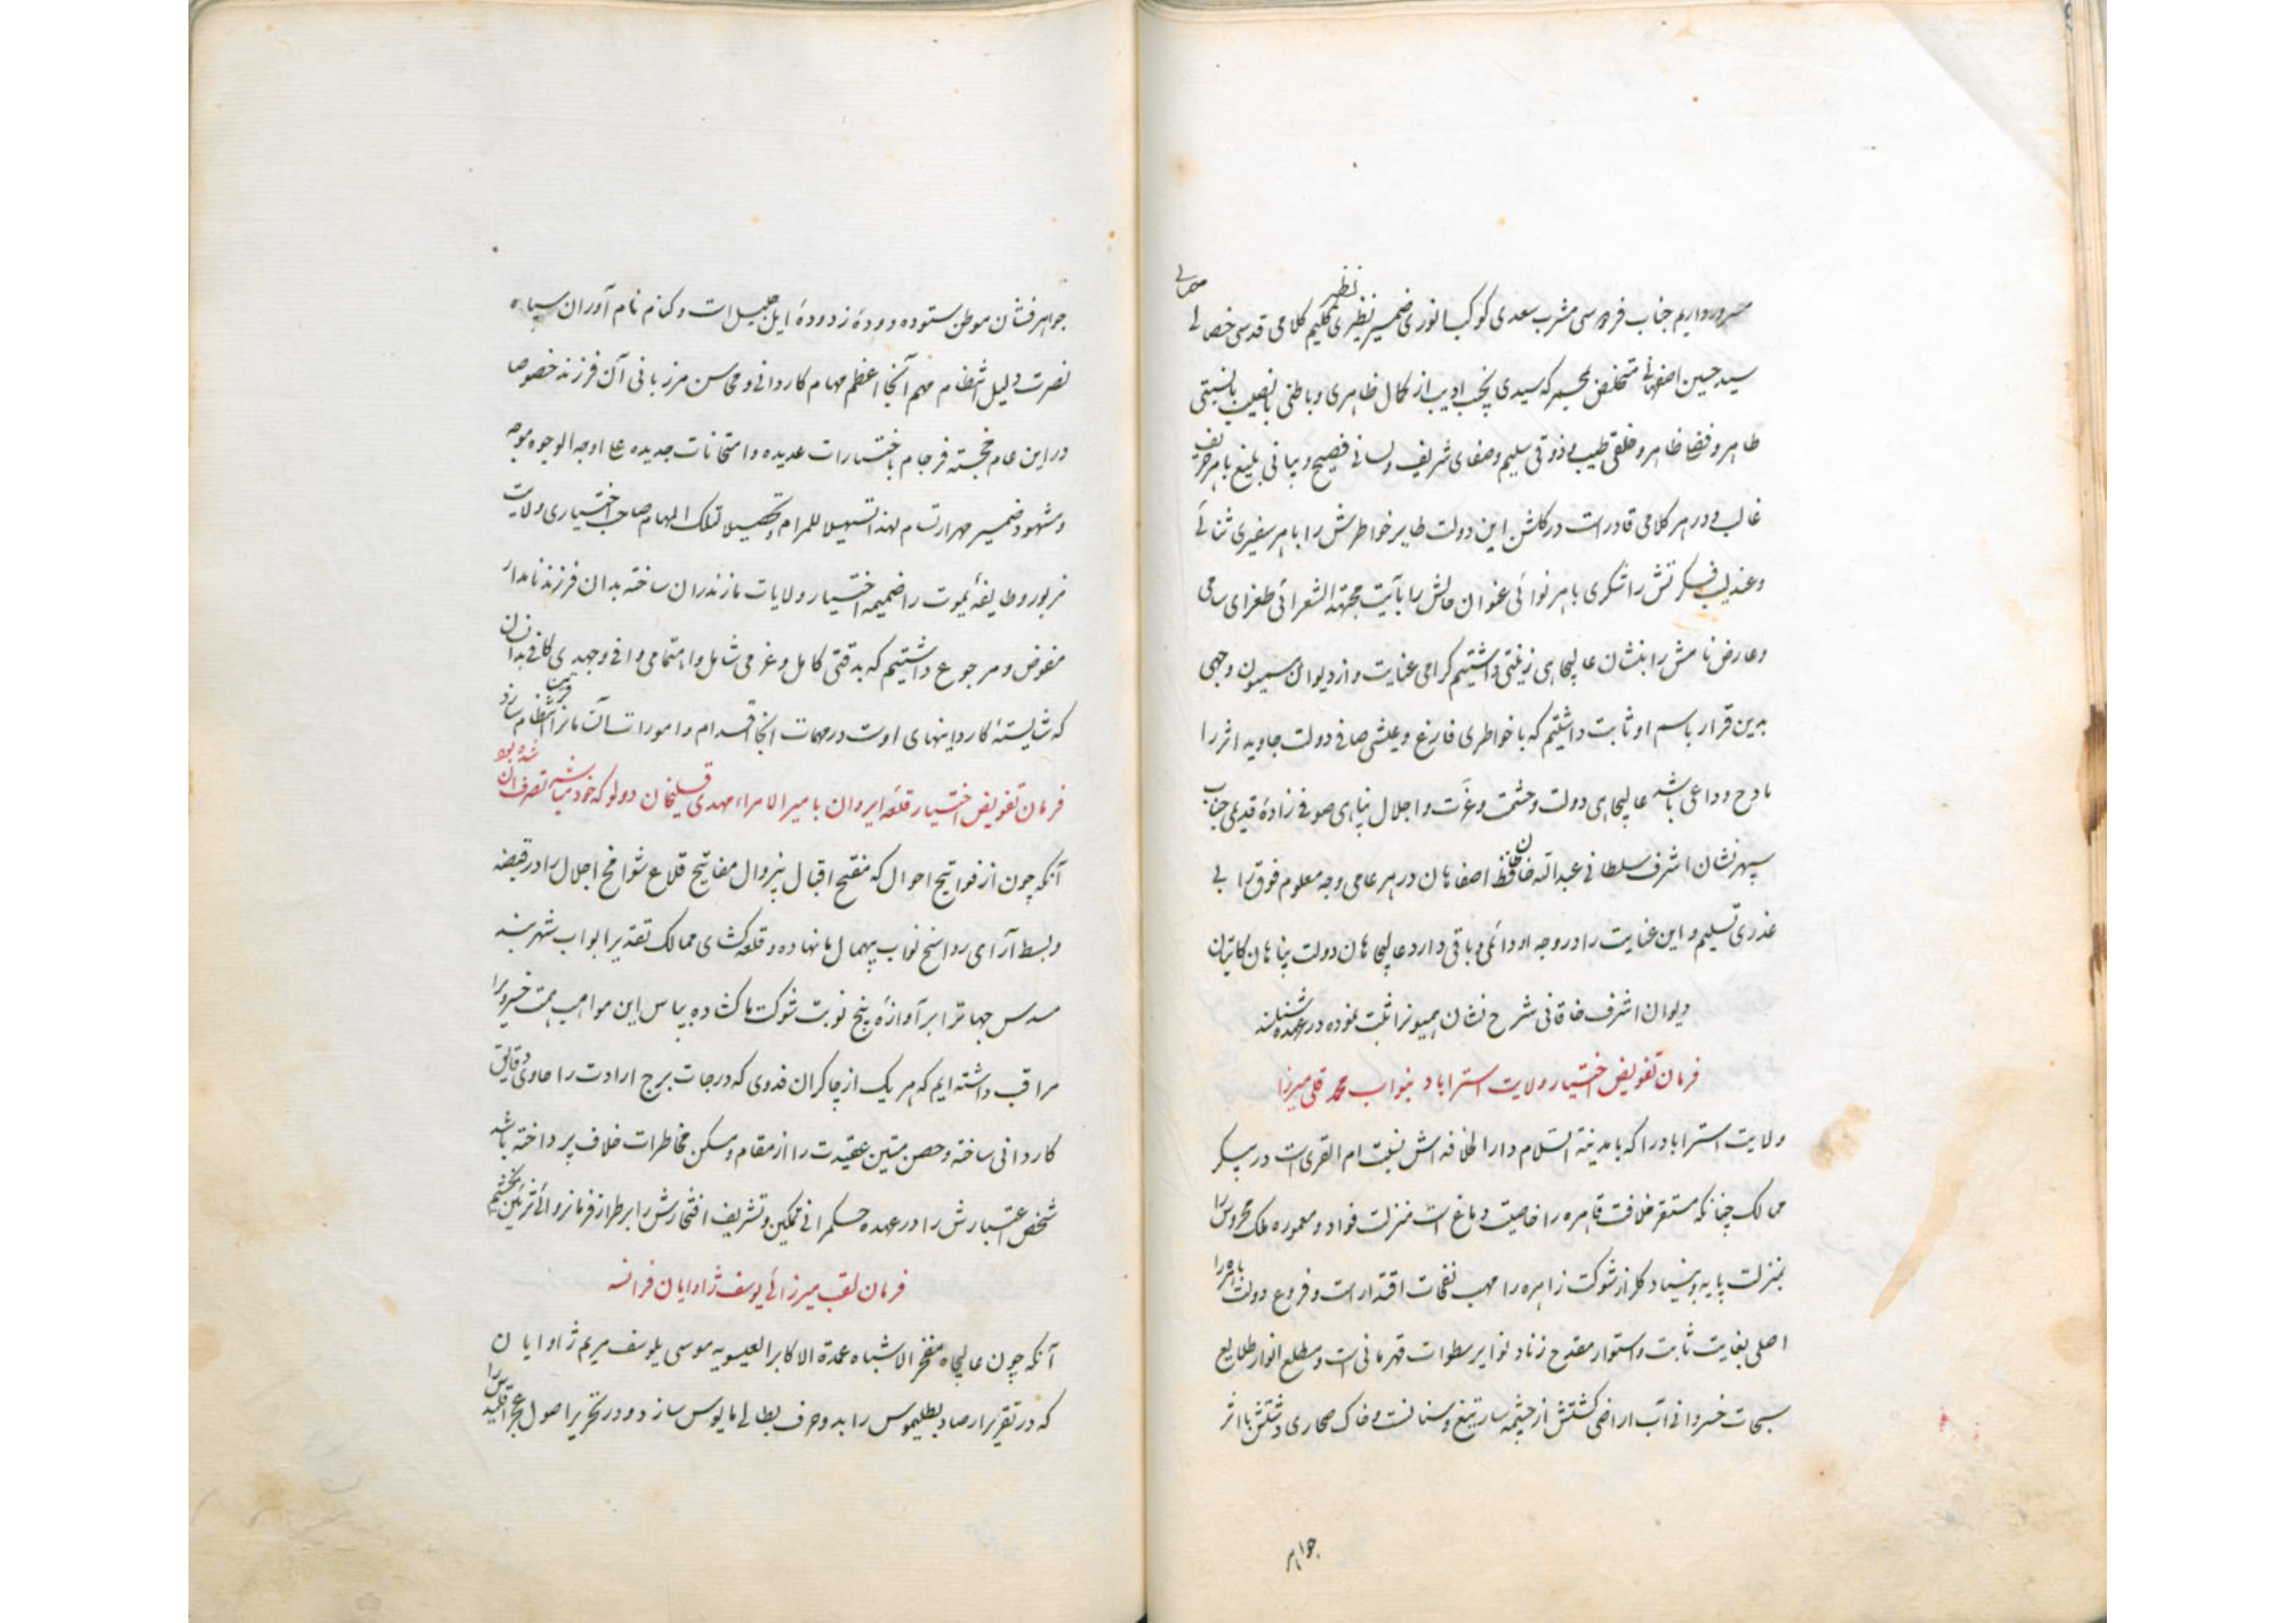 جناب فردوسی مشرب سعدی کوکب انوری ضمیر نظیری نظیر کلیم کلامی قدسی خصالی
سید حسین اصفهانی متخلص بمجمر که سیدی نجیب ادیب از کمال ظاهری و باطنی با نصیب با نسبتی
طاهر و فضلی ظاهر و خلقی طیب و ذوقی سلیم و صفای شریف و لسانی فصیح و بیانی بلیغ با هر حریف
غالب و در هر کلامی قادر است در گلشن این دولت طایر خواطرش را با هر سفیری ثنائی
و عندلیب فکرتش را شکری با هر نوائی عنوان حالش را بآیت مجتهد الشعرائی طغرای سامی
و عارض نامش را بنشان عالیجاهی زینتی داشتیم گرامی عنایت و از دیوان همیون وجهی
بدین قرار باسم او ثابت داشتیم که با خواطری فارغ و عیشی صافی دولت جاوید اثر را
مادح و داعی باشد عالیجاهی دولت و حشمت و عزت و اجلال پناهی صوفی زادهٔ قدیمی جناب
سپهر نشان اشرف سلطانی عبدالله خان حافظ اصفاهان در هر عامی وجه معلوم فوق را بی
عذری تسلیم و این عنایت را در وجه او دائمی و باقی دارد عالیجاهان دولت پناهان کاتبان
دیوان اشرف خاقانی شرح نشان همیونرا ثبت نموده در عهده شناسند
فرمان تفویض اختیار ولایت استراباد بنواب محمد قلی میرزا
ولایت استراباد را که با مدینة السلام دار الخلافه اش نسبت ام القری است در پیکر
ممالک چنانکه مستقر خلافت قاهره را خاصیت دماغ است بمنزلت فواد و معموره ملک محروس را
بمنزلت پایه و بنیاد گلزار شوکت زاهره را مهب نفحات اقتدار است و فروع دولت باهره را
اصلی بغایت ثابت و استوار مقدح زناد نوایر سطوات قهرمانی است و مطلع انوار طلایع
سبحات خسروانی آب اراضی کشتش از چشمه سار تیغ و سنانست و خاک صحاری دشتش با اثر
جواهر
جواهر فشان موطن ستوده دودهٔ زدودهٔ ایل جلیل است و کنام نام آوران سپاه
نصرت دلیل انتظام مهم آنجا اعظم مهام کاردانی و محاسن مرزبانی آن فرزند خصوصا
در این عام خجسته فرجام باختبارات عدیده و امتحانات جدیده علی اوجه الوجوه موجه
و مشهود ضمیر مهر ارتسام لهذا تسهیلا للمرام و تحصیلا لتلک المهام صاحب اختیاری ولایت
مزبور و طایفه یموت را ضمیمه اختیار ولایات مازندران ساخته بدان فرزند نامدار
مفوض و مرجوع داشتیم که بدقتی کامل و عزمی شامل و اهتمامی وافی و جهدی کافی بدان
که شایستهٔ کاردانیهای اوست در مهمات آنجا اقدام و امورات آنسامانرا قرین انتظام سازد
فرمان تفویض اختیار قلعه ایروان بامیر الامراء مهدی قلیخان دولو که خود متصرف آن شده بود
آنکه چون از فواتیح احوال که مفتح اقبال بیزوال مفاتیح قلاع شوامخ اجلال را در قبضه
و بسط آرای رواسخ نواب بیهمال ما نهاده و قلعه گشای ممالک تقدیر ابواب شهر بند
مسدس جهانرا بر آوازهٔ پنج نوبت شوکت ما گشاده بپاس این مواهب همت خسرویرا
مراقب داشته ایم که هر یک از چاکران فدوی که درجات برج ارادت را حاوی دقایق
کاردانی ساخته و حصن متین عقیدت را از مقام و مسکن مخاطرات خلاف پرداخته باشد
شخص اعتبارش را در عهده حکمرانی تمکین و تشریف افتخارش را بر طراز فرمانروائی تزئین بخشیم
فرمان لقب میرزائی یوسف ژاوایان فرانسه
آنکه چون عالیجاه مفخر الاشباه عمدة الاکابر العیسویه موسی یلوسف مریم ژاوایان
که در تقریر ارصاد بطلیموس را بدو حرف بطالی مایوس سازد و در تحریر اصول عجز اقلیدس را